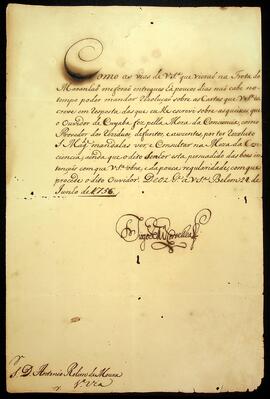 Como as vias de V.S.ª que vieraõ na Frota do
Maranhaõ me foraõ entregues ha poucos dias naõ cabe no
tempo poder mandar rezoluçaõ sobre as Cartas que V.S.ª es-
creve em resposta das que se lhe escrevèraõ sobre a queixa que
o Ouvidor de Cuyabá fez pella Meza da Consciencia, como
Provedor dos deffuntos, e auzentes, por ter rezoluto
S. Mag.e mandalas ver, e Consultar na Meza da Con-
ciencia, ainda que o dito Senhor está persuadido das boas in-
tençõis com que V.S.ª obra, e da pouca regularidade com que
procede o dito Ouvidor. Deos g.e a V.S.ª Belem 24 de
Junho de 1756.
S.r D. Antonio Rolim de Moura